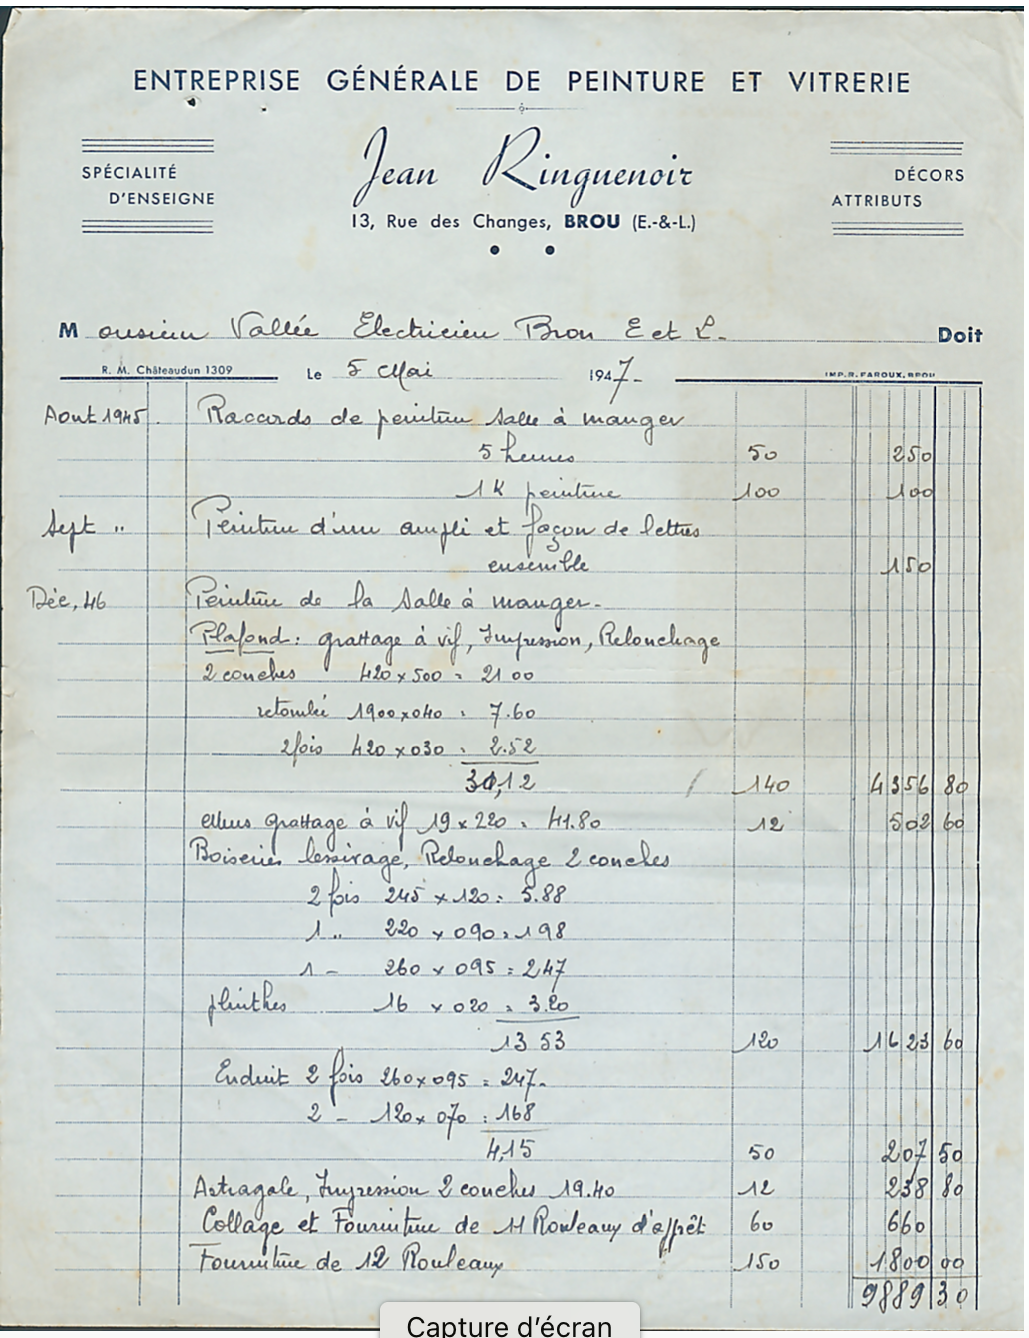 ENTREPRISE GÉNÉRALE DE PEINTURE ET VITRERIE
SPÉCIALITÉ
D'ENSEIGNE
Jean Ringuenoir
DÉCORS
ATTRIBUTS
13, Rue des Changes, BROU (E.-&-L.)
Monsieur Vallée Electricien Brou E et L. Doit
R. M. Châteaudun 1309 Le 5 Mai 1947- IMP. R. FAROUX, BROU
Aout 1945 Raccords de peinture salle à manger
5 heures 50 250
1 K peinture 100 100
Sept " Peinture d'un ampli et façon de lettres
ensemble 150
Déc, 46 Peinture de la salle à manger-
Plafond: grattage à vif, Impression, Rebouchage
2 couches 420 x 500 = 21 00
retombée 1900 x 040 = 7.60
2 fois 420 x 030 = 2.52
31,12 140 4356 80
Murs grattage à vif 19 x 220 = 41.80 12 502 60
Boiseries lessivage, Rebouchage 2 couches
2 fois 245 x 120 = 5.88
1 " 220 x 090 = 198
1 - 260 x 095 = 247
plinthes 16 x 020 = 3.20
13 53 120 1623 60
Enduit 2 fois 260 x 095 = 247-
2 - 120 x 070 = 168
4,15 50 207 50
Astragale, Impression 2 couches 19.40 12 238 80
Collage et Fourniture de 11 Rouleaux d'apprêt 60 660
Fourniture de 12 Rouleaux 150 1800 00
9889 30
Capture d'écran